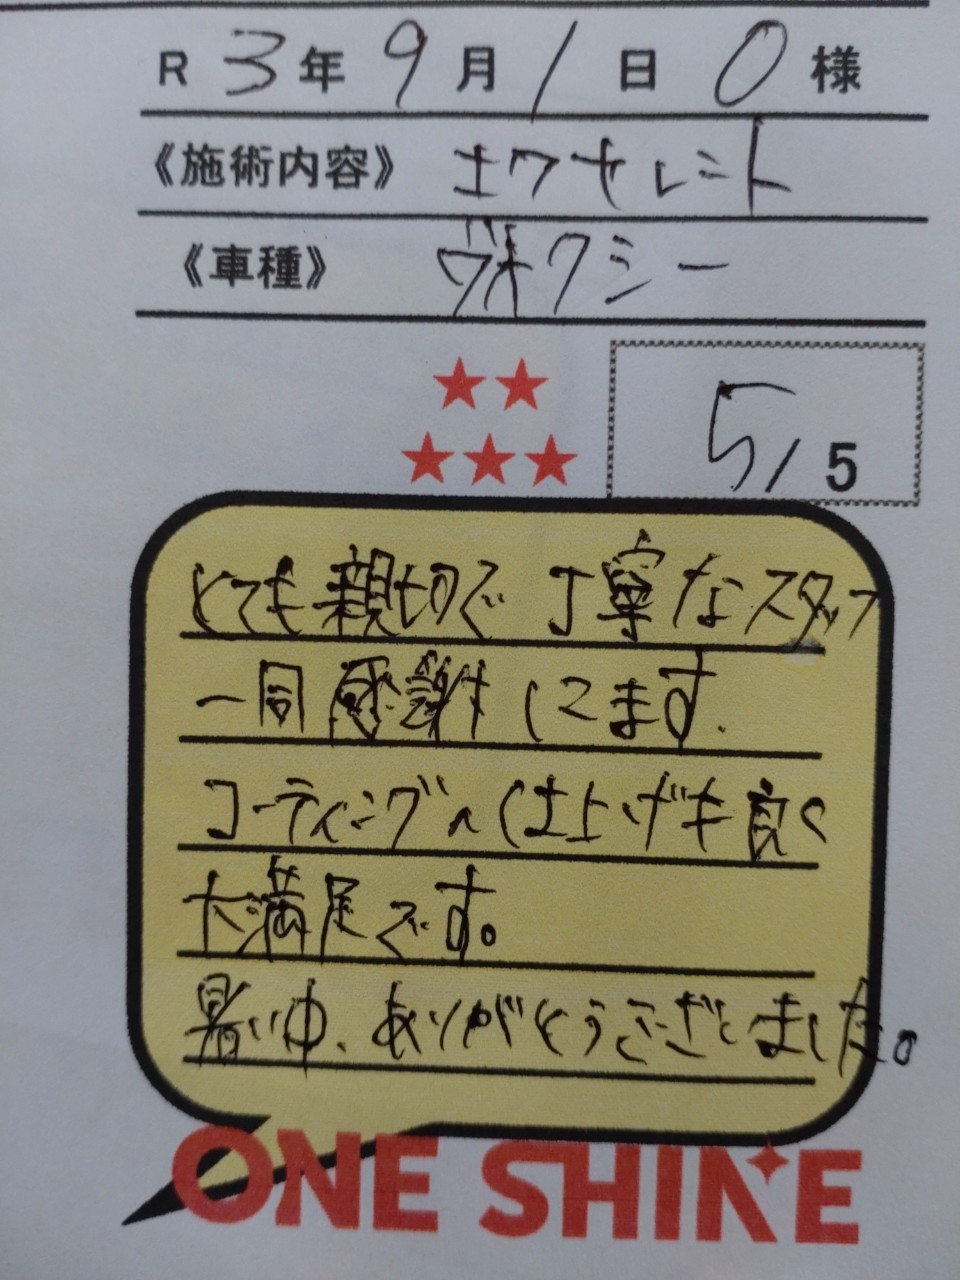 R 3年 9月 1日 O様
《施術内容》 エクセレント
《車種》 ヴォクシー
★★
★★★
5/5
とても親切で丁寧なスタッフ
一同感謝してます.
コーティングへ仕上げも良く
大満足です。
暑い中、ありがとうございました。
ONE SHINE